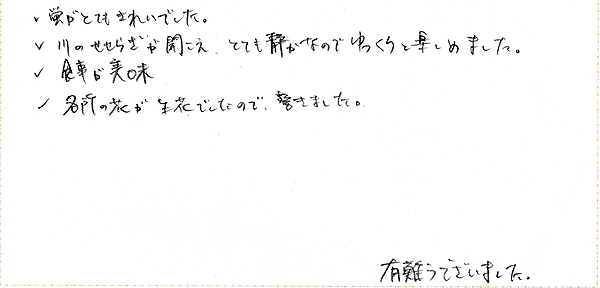 ✓ 蛍がとてもきれいでした。
✓ 川のせせらぎが聞こえ、とても静かなのでゆっくりと楽しめました。
✓ 食事が美味
✓ 各所の花が生花でしたので、驚きました。
有難うございました。